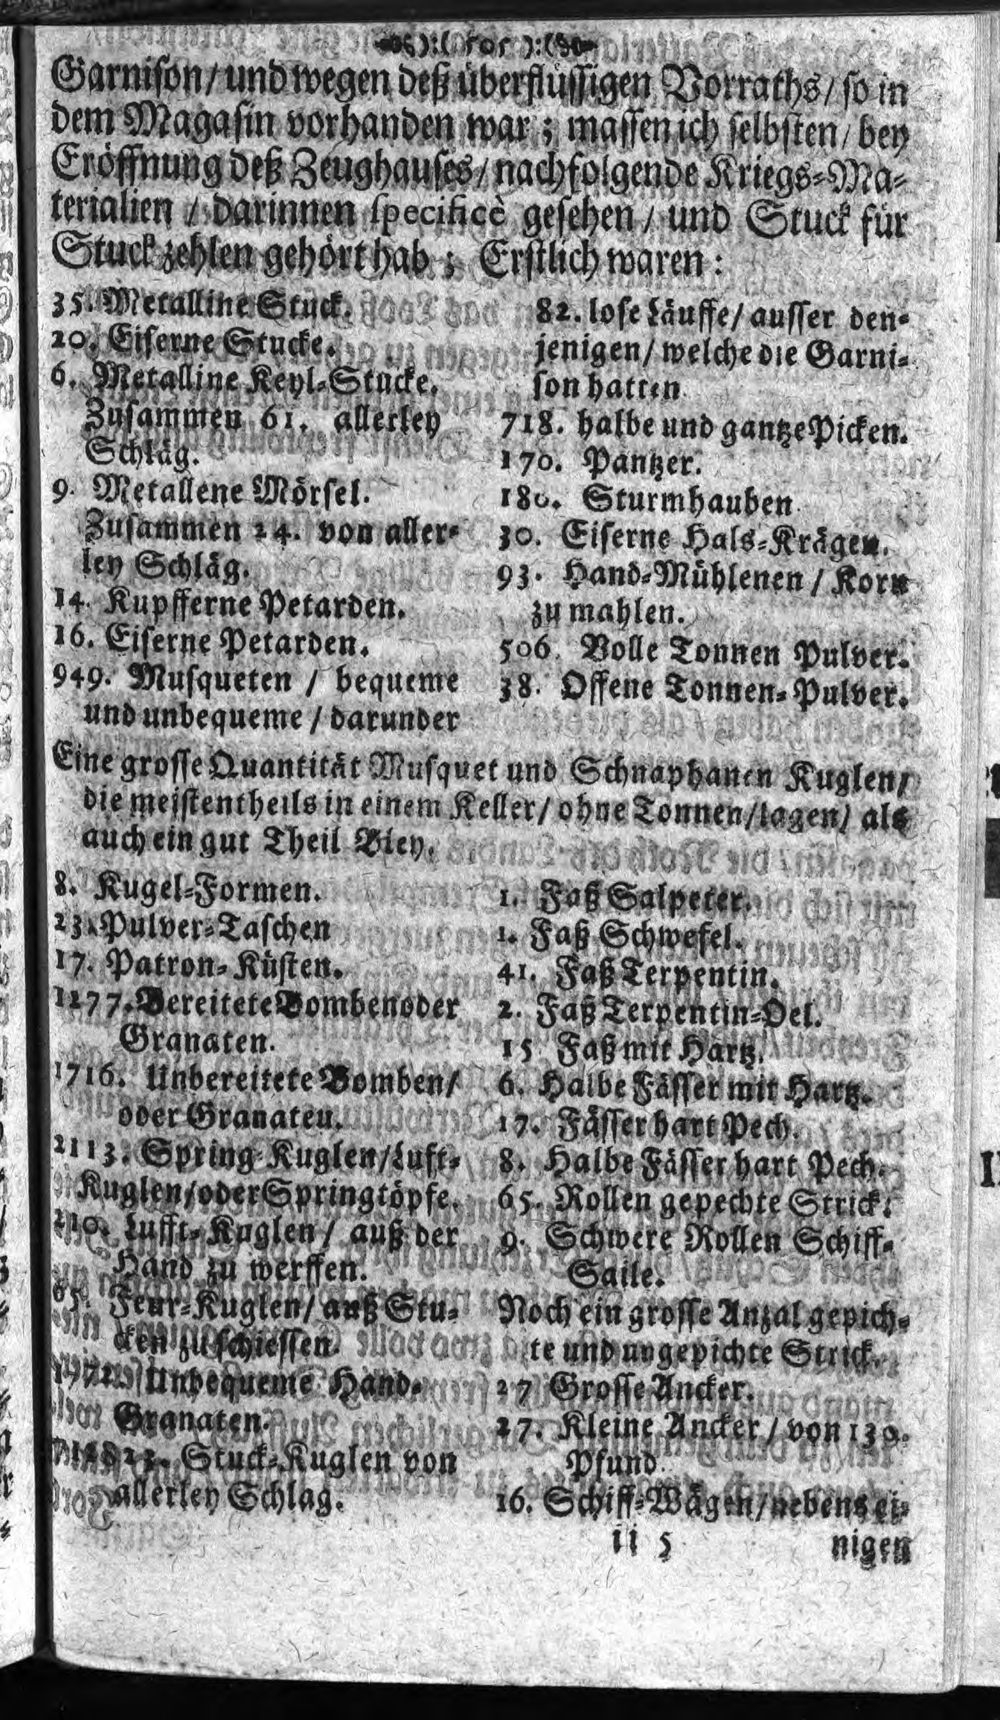 ):( 505 ):(
Garnison/ und wegen deß überflüssigen Vorraths/ so in
dem Magasin vorhanden war; massen ich selbsten/ bey
Eröffnung deß Zeughauses/ nachfolgende Kriegs-Ma-
terialien / darinnen specificè gesehen / und Stuck für
Stuck zehlen gehört hab; Erstlich waren:
35. Metalline Stuck.
20. Eiserne Stucke.
6. Metalline Keyl-Stucke.
Zusammen 61. allerley
Schläg.
9. Metallene Mörsel.
Zusammen 24. von aller-
ley Schläg.
14. Kupfferne Petarden.
16. Eiserne Petarden.
949. Musqueten / bequeme
und unbequeme / darunder
82. lose Läuffe/ ausser den-
jenigen/ welche die Garni-
son hatten.
718. halbe und gantze Picken.
170. Pantzer.
180. Sturmhauben.
30. Eiserne Hals-Krägen.
93. Hand-Mühlenen / Korn
zu mahlen.
506. Volle Tonnen Pulver.
38. Offene Tonnen-Pulver.
Eine grosse Quantität Musquet und Schnaphanen Kuglen/
die meistentheils in einem Keller/ ohne Tonnen/ lagen/ als
auch ein gut Theil Bley.
8. Kugel-Formen.
23. Pulver-Taschen
17. Patron-Küsten.
1277. Bereitete Bomben oder
Granaten.
1716. Unbereitete Bomben/
oder Granaten.
2113. Spring-Kuglen/Luft-
Kuglen/oder Springtöpfe.
210. Lufft-Kuglen / auß der
Hand zu werffen.
65. Feur-Kuglen/ auß Stu-
cken zu schiessen.
Unbequeme Hand-
Granaten.
Stuck-Kuglen von
allerley Schlag.
1. Faß Salpeter.
1. Faß Schwefel.
41. Faß Terpentin.
2. Faß Terpentin-Oel.
15 Faß mit Hartz.
6. Halbe Fässer mit Hartz.
17. Fässer hart Pech.
8. Halbe Fässer hart Pech.
65. Rollen gepechte Strick.
9. Schwere Rollen Schiff-
Saile.
Noch ein grosse Anzal gepich-
te und ungepichte Strick.
27 Grosse Ancker.
27. Kleine Ancker / von 130.
Pfund.
16. Schiff-Wägen/ nebens ei-
Ii 5 nigen